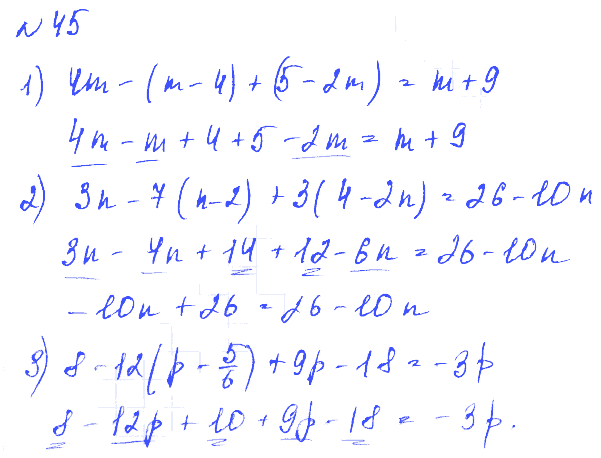 № 45
1) 4m - (m - 4) + (5 - 2m) = m + 9
4m - m + 4 + 5 - 2m = m + 9
2) 3n - 7(n - 2) + 3(4 - 2n) = 26 - 10n
3n - 7n + 14 + 12 - 6n = 26 - 10n
-10n + 26 = 26 - 10n
3) 8 - 12(p - 5/6) + 9p - 18 = -3p
8 - 12p + 10 + 9p - 18 = -3p.